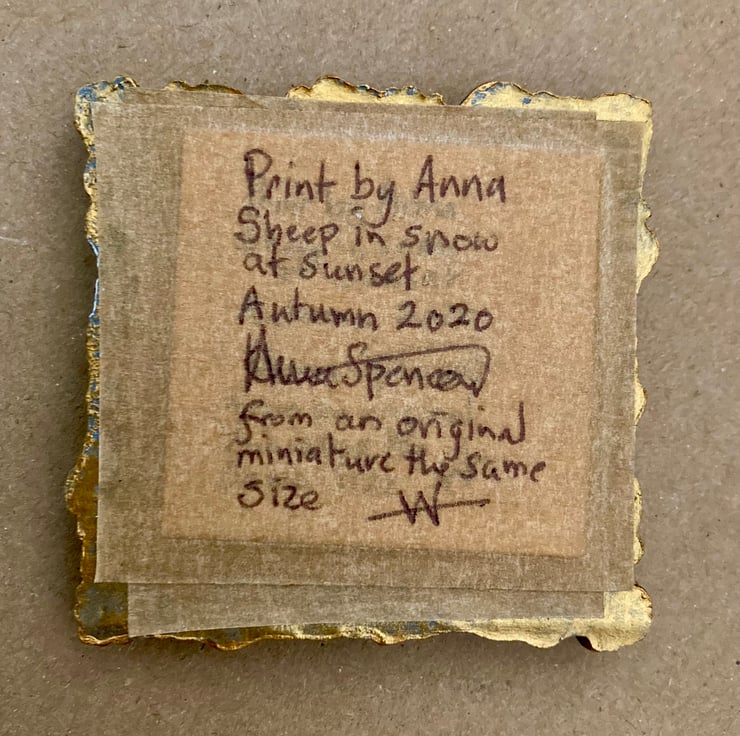 Print by Anna
Sheep in snow
at sunset
Autumn 2020
Anna Spencer
from an original
miniature the same
size W